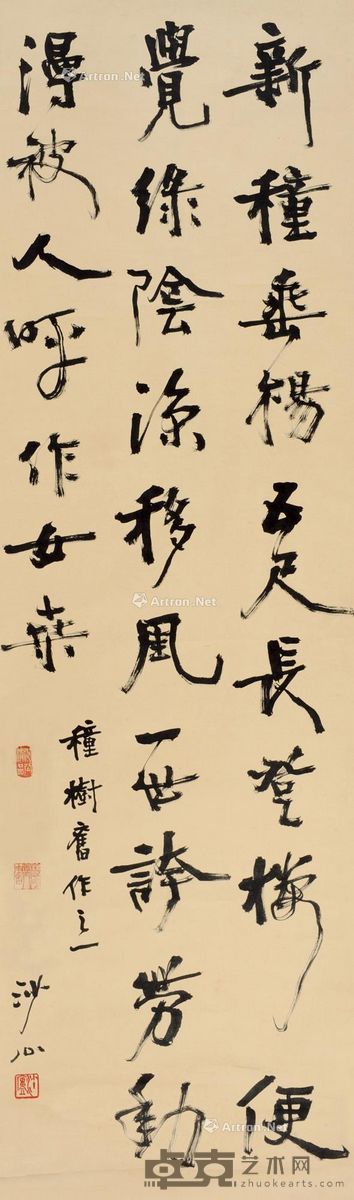 新種垂楊五尺長登樓便
覺綠陰涼移風一世誇勞動
漫被人呼作女桑
種樹舊作之一
沙公
Artron.Net
Artron.Net
Artron.Net
Artron.Net
卓克艺术网
zhuokearts.com